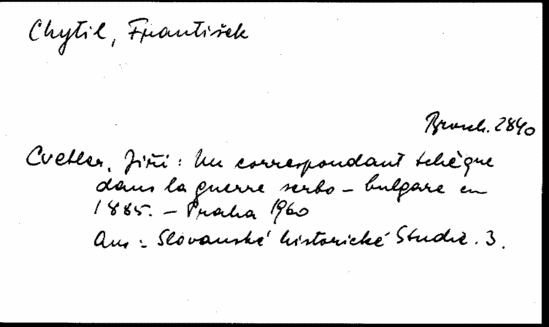 Chytil, František
Brosch. 2840
Cvetler, Jiří: Un correspondant tchèque
dans la guerre serbo-bulgare en
1885. - Praha 1960
Aus: Slovanské historické Studie. 3.